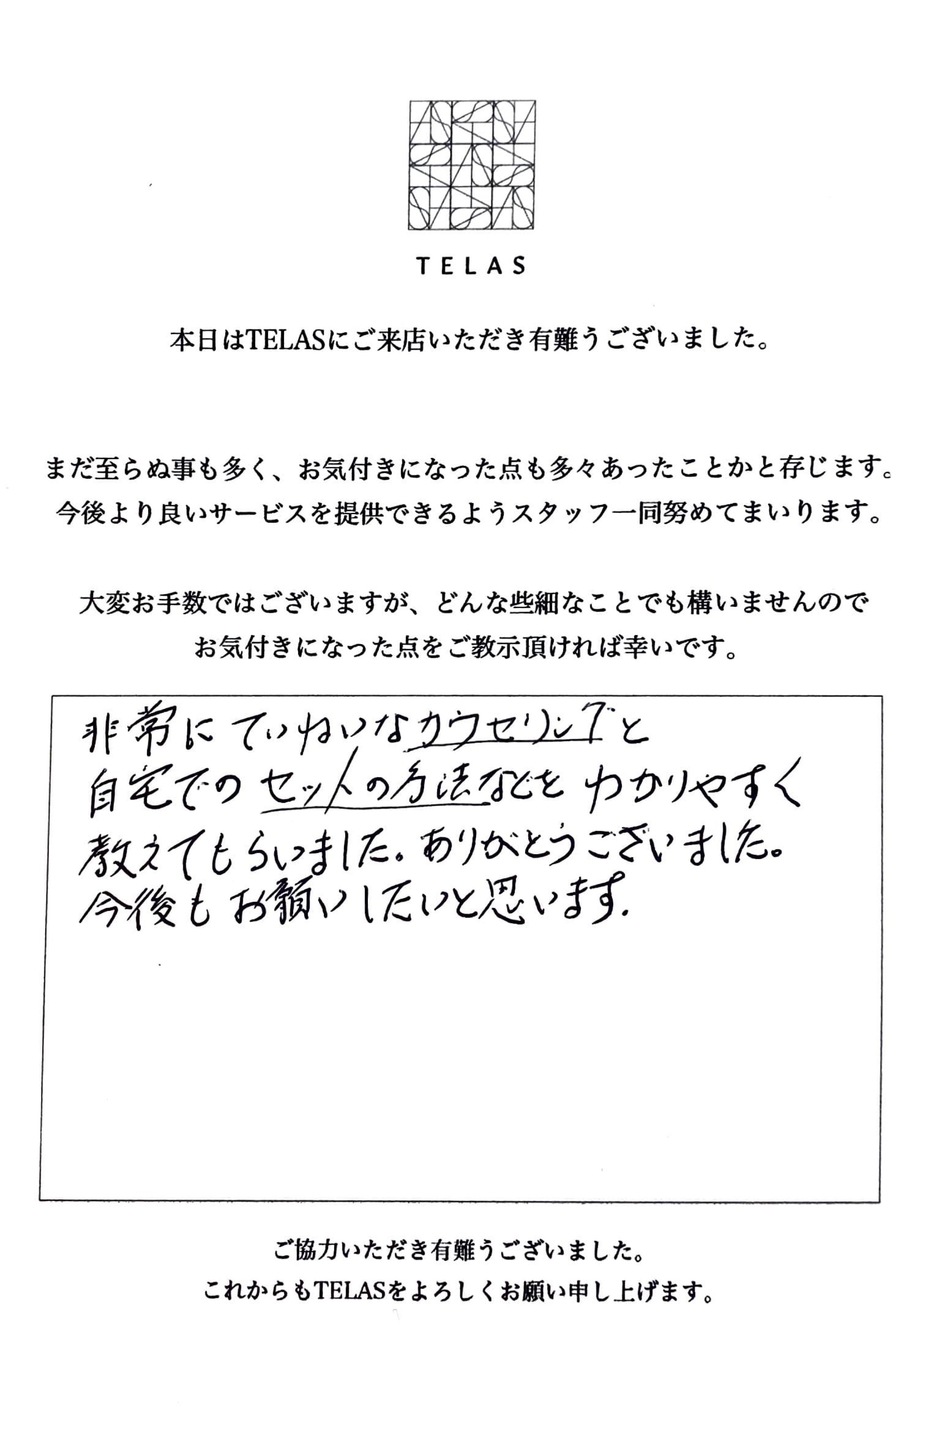 TELAS
本日はTELASにご来店いただき有難うございました。
まだ至らぬ事も多く、お気付きになった点も多々あったことかと存じます。
今後より良いサービスを提供できるようスタッフ一同努めてまいります。
大変お手数ではございますが、どんな些細なことでも構いませんので
お気付きになった点をご教示頂ければ幸いです。
非常にていねいなカウセリングと
自宅でのセットの方法などを わかりやすく
教えてもらいました。ありがとうございました。
今後もお願いしたいと思います.
ご協力いただき有難うございました。
これからもTELASをよろしくお願い申し上げます。